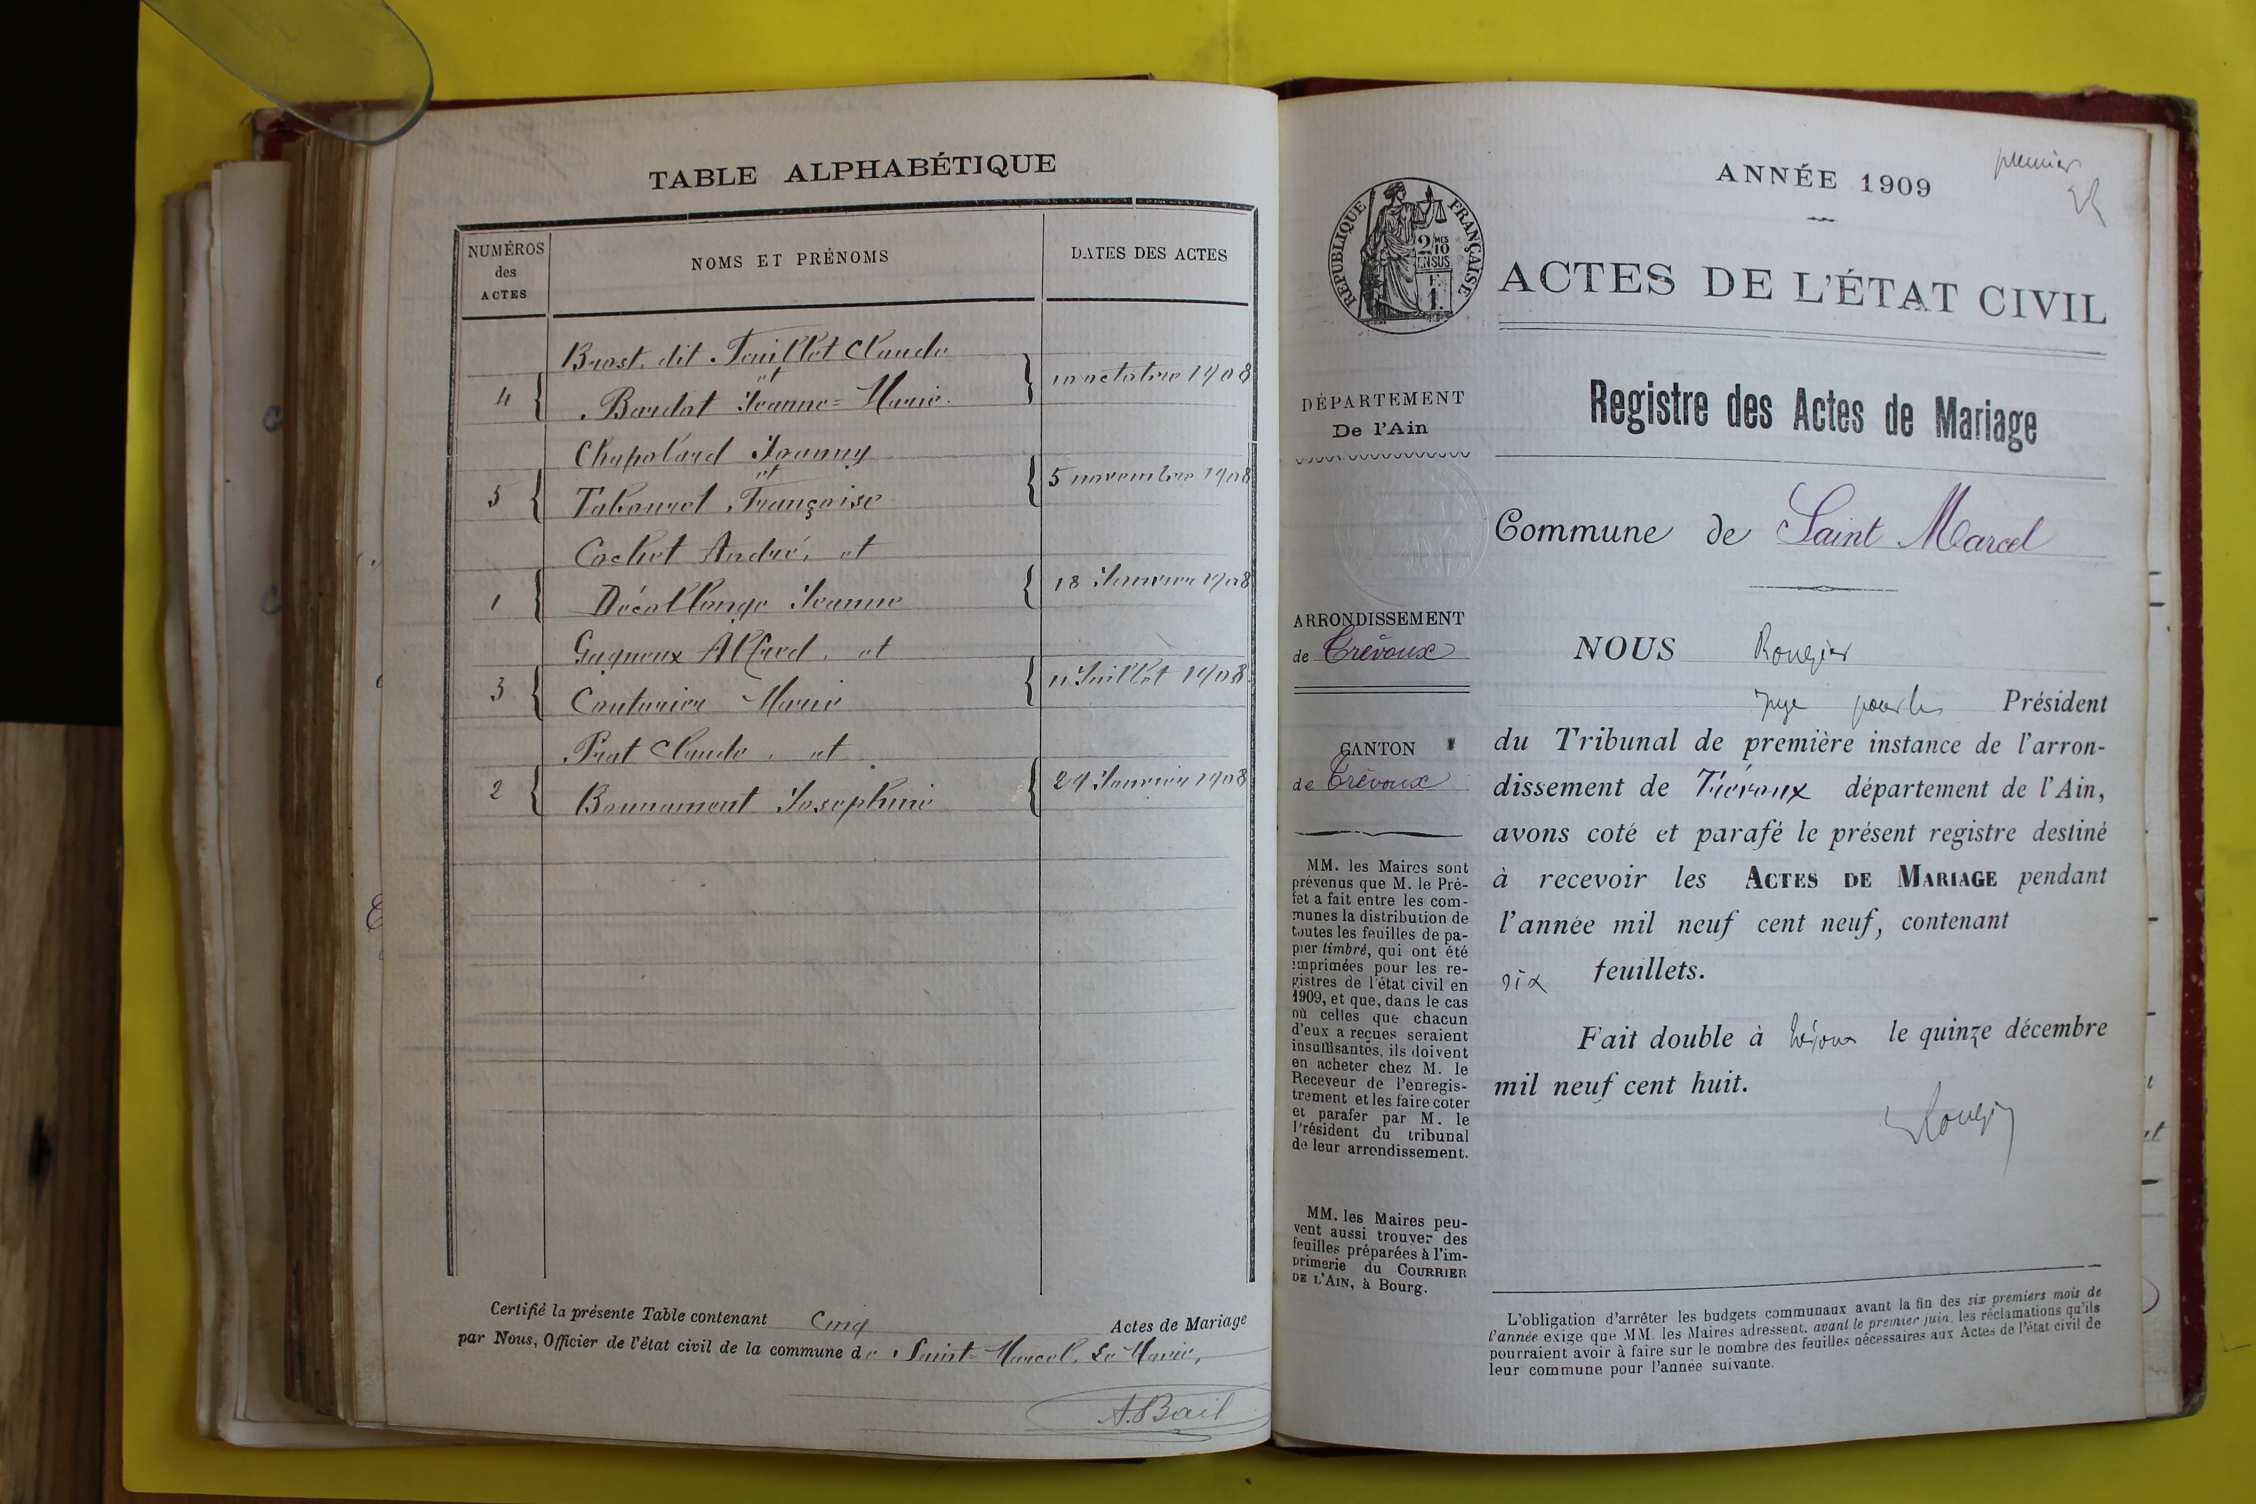 TABLE ALPHABÉTIQUE
NUMÉROS
des
ACTES
NOMS ET PRÉNOMS
DATES DES ACTES
Brost dit Feuillet Claude
et
4 Bardat Jeanne=Marie
10 octobre 1908
Chapolard Joanny
et
5 Tabouret Françoise
5 novembre 1908
Cochet André, et
1 Décollonge Jeanne
18 Janvier 1908
Gagneux Alfred, et
3 Couturier Marie
11 Juillet 1908
Prat Claude, et
2 Bonnament Josephine
24 Janvier 1908
Certifié la présente Table contenant Cinq Actes de Mariage
par Nous, Officier de l'état civil de la commune de Saint-Marcel. Le Maire,
A. Bail
premier
ANNÉE 1909
RÉPUBLIQUE FRANÇAISE
2/10
EN SUS
1 F.
ACTES DE L'ÉTAT CIVIL
DÉPARTEMENT
De l'Ain
Registre des Actes de Mariage
Commune de Saint Marcel
ARRONDISSEMENT
de Trévoux
CANTON
de Trévoux
MM. les Maires sont
prévenus que M. le Pré-
fet a fait entre les com-
munes la distribution de
toutes les feuilles de pa-
pier timbré, qui ont été
imprimées pour les re-
gistres de l'état civil en
1909, et que, dans le cas
où celles que chacun
d'eux a reçues seraient
insuffisantes, ils doivent
en acheter chez M. le
Receveur de l'enregis-
trement et les faire coter
et parafer par M. le
Président du tribunal
de leur arrondissement.
MM. les Maires peu-
vent aussi trouver des
feuilles préparées à l'im-
primerie du COURRIER
DE L'AIN, à Bourg.
NOUS Rougier
juge pour le Président
du Tribunal de première instance de l'arron-
dissement de Trévoux département de l'Ain,
avons coté et parafé le présent registre destiné
à recevoir les ACTES DE MARIAGE pendant
l'année mil neuf cent neuf, contenant
six feuillets.
Fait double à Trévoux le quinze décembre
mil neuf cent huit.
Rougier
L'obligation d'arrêter les budgets communaux avant la fin des six premiers mois de
l'année exige que MM. les Maires adressent, avant le premier juin, les réclamations qu'ils
pourraient avoir à faire sur le nombre des feuilles nécessaires aux Actes de l'état civil de
leur commune pour l'année suivante.